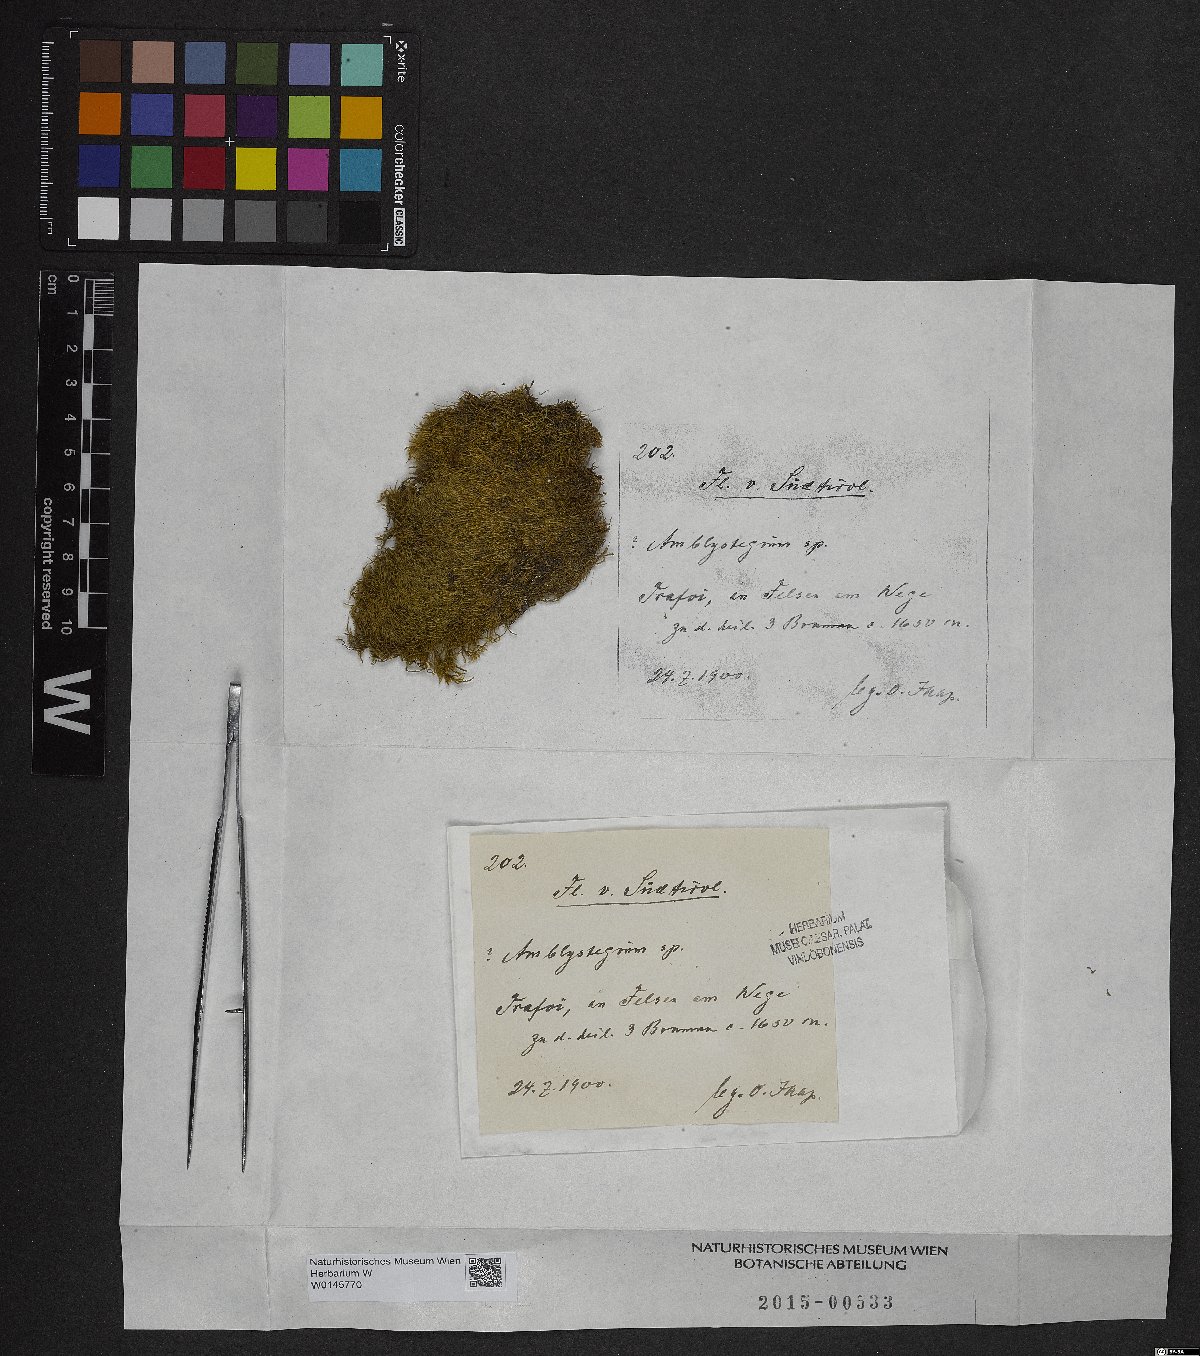 x-rite
colorchecker CLASSIC
0 1 2 3 4 5 6 7 8 9 10
cm
copyright reserved
W
202.
Fl. v. Südtirol.
? Amblystegium sp.
Trafoi, an Felsen am Wege
zu d. heil. 3 Brunnen c. 1650 m.
24.7.1900.
leg. O. Jaap.
202.
Fl. v. Südtirol.
? Amblystegium sp.
Trafoi, an Felsen am Wege
zu d. heil. 3 Brunnen c. 1650 m.
24.7.1900.
leg. O. Jaap.
HERBARIUM
MUSEI CAESAR. PALAT.
VINDOBONENSIS
Naturhistorisches Museum Wien
Herbarium W
W0145770
NATURHISTORISCHES MUSEUM WIEN
BOTANISCHE ABTEILUNG
2015-00533